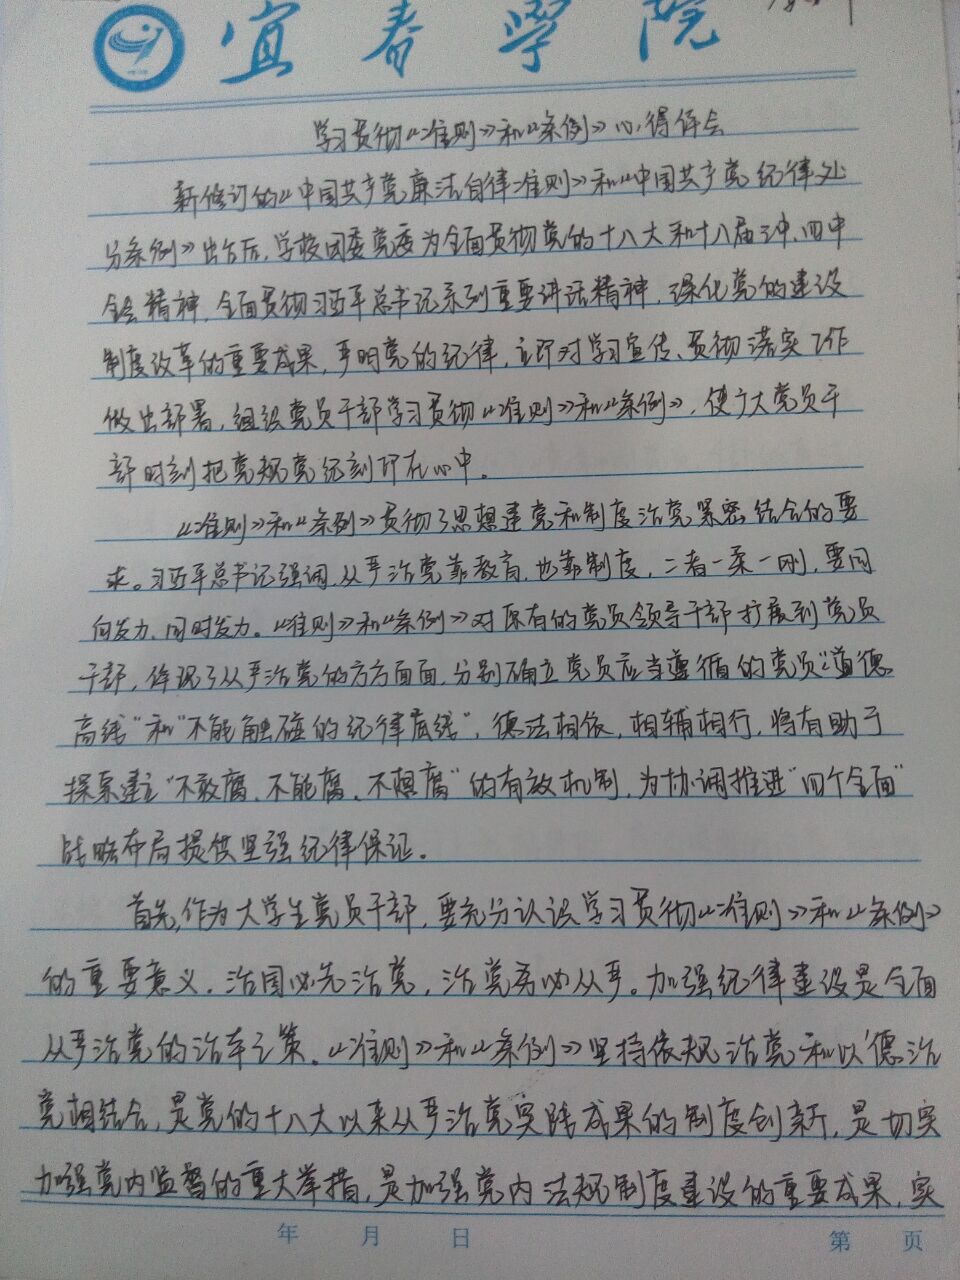 宜春学院
学习贯彻《准则》和《条例》心得体会
新修订的《中国共产党廉洁自律准则》和《中国共产党纪律处
分条例》出台后，学校团委高度为全面贯彻党的十八大和十八届三中、四中
全会精神，全面贯彻习近平总书记系列重要讲话精神，深化党的建设
制度改革的重要成果，严明党的纪律，立即对学习宣传、贯彻落实工作
做出部署，组织党员干部学习贯彻《准则》和《条例》，使广大党员干
部时刻把党规党纪刻印在心中。
《准则》和《条例》贯彻了思想建党和制度治党紧密结合的要
求。习近平总书记强调，从严治党靠教育，也靠制度，二者一柔一刚，要同
向发力、同时发力。《准则》和《条例》对原有的党员领导干部扩展到党员
干部，体现了从严治党的方方面面，分别确立党员应当遵循的党员"道德
高线"和"不能触碰的纪律底线"，德法相依，相辅相行，将有助于
探索建立"不敢腐、不能腐、不想腐"的有效机制，为协调推进"四个全面"
战略布局提供坚强纪律保证。
首先，作为大学生党员干部，要充分认识学习贯彻《准则》和《条例》
的重要意义，治国必先治党，治党务必从严。加强纪律建设是全面
从严治党的治本之策。《准则》和《条例》坚持依规治党和以德治
党相结合，是党的十八大以来从严治党实践成果的制度创新，是切实
加强党内监督的重大举措，是加强党内法规制度建设的重要成果，实
年 月 日
第 页